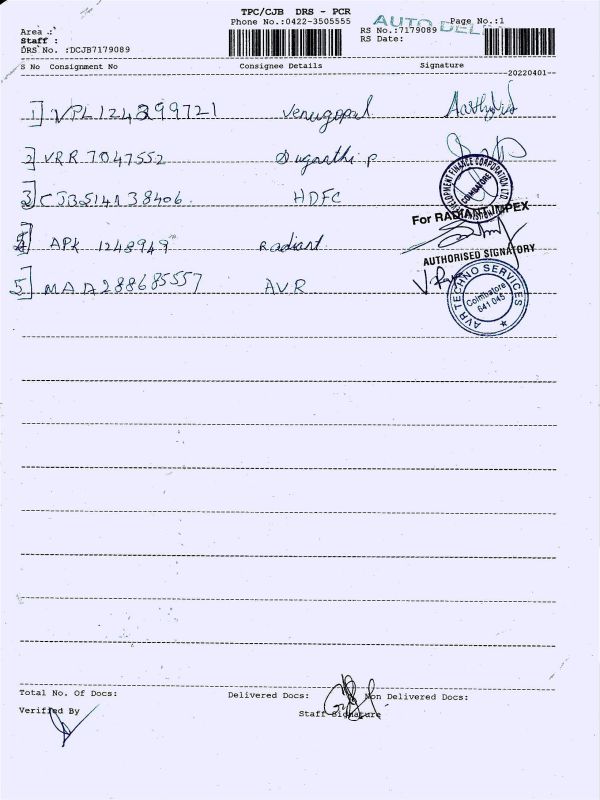 TPC/CJB DRS - PCR
Phone No.:0422-3505555
AUTO DEL
Page No.:1
Area :
RS No.:7179089
Staff :
RS Date:
DRS No. :DCJB7179089
S No Consignment No Consignee Details Signature
20220401
1] VPL124399721 Venugopal
2] VRR 7047552 Suganthi p
3] CJBS14A38406 HDFC
DEVELOPMENT FINANCE CORPORATION LTD.
COIMBATORE
For RADIANT IMPEX
4] APK 1248949 Radiant
AUTHORISED SIGNATORY
5] MAA288685557 AVR
AVR TECHNO SERVICES
Coimbatore
641 045
Total No. Of Docs: Delivered Docs: Non Delivered Docs:
Verified By Staff Signature